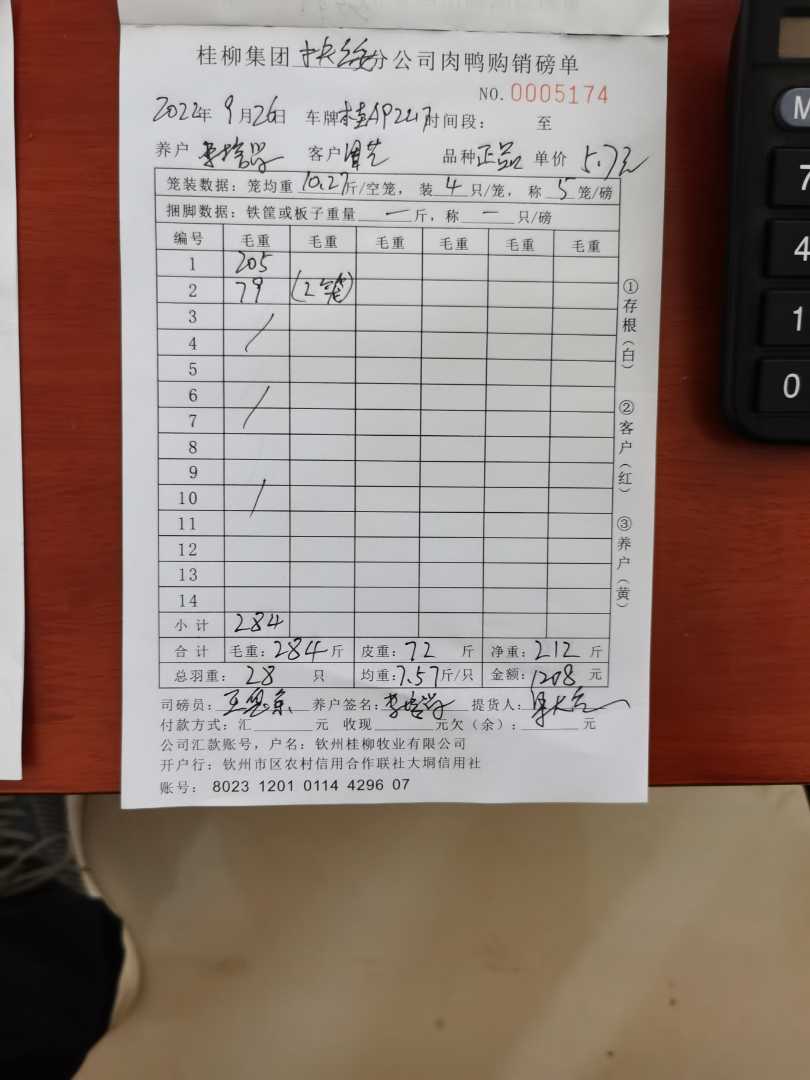 桂柳集团 分公司肉鸭购销磅单
NO.0005174
2022年9月26日 车牌桂AP2217时间段： 至
养户 客户 品种正品 单价 5.7元
笼装数据：笼均重10.27斤/空笼，装4只/笼，称5笼/磅
捆脚数据：铁筐或板子重量一斤，称一只/磅
编号 毛重 毛重 毛重 毛重 毛重 毛重
1 205
2 79 (2笼)
3
4
5
6
7
8
9
10
11
12
13
14
小计 284
合计 毛重：284斤 皮重：72斤 净重：212斤
总羽重：28只 均重：7.57斤/只 金额：1208元
①存根（白） ②客户（红） ③养户（黄）
司磅员： 养户签名： 提货人：
付款方式：汇 元 收现 元欠（余）： 元
公司汇款账号，户名：钦州桂柳牧业有限公司
开户行：钦州市区农村信用合作联社大垌信用社
账号： 8023 1201 0114 4296 07
M
7
4
1
0